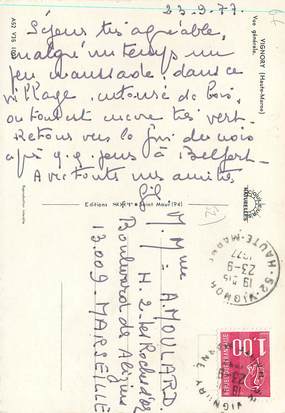 23_9_77_
Séjour très agréable,
malgré un temps un
peu maussade, dans ce
village entouré de bois,
où tout est encore très vert_
Retour vers la fin du mois
après q.q. jours à Belfort_
Avec toutes nos amitiés
A52 VES 100
VIGNORY (Haute-Marne)
Vue générale.
Reproduction interdite
Editions Saint Maur (94)
NOUVELLES
M. Mme A. MOULARD_
H. 2_
Boulevard
13.009 MARSEILLE
52-VIGNORY
HAUTE-MARNE
23-9
1977
1.00
REPUBLIQUE FRANCAISE